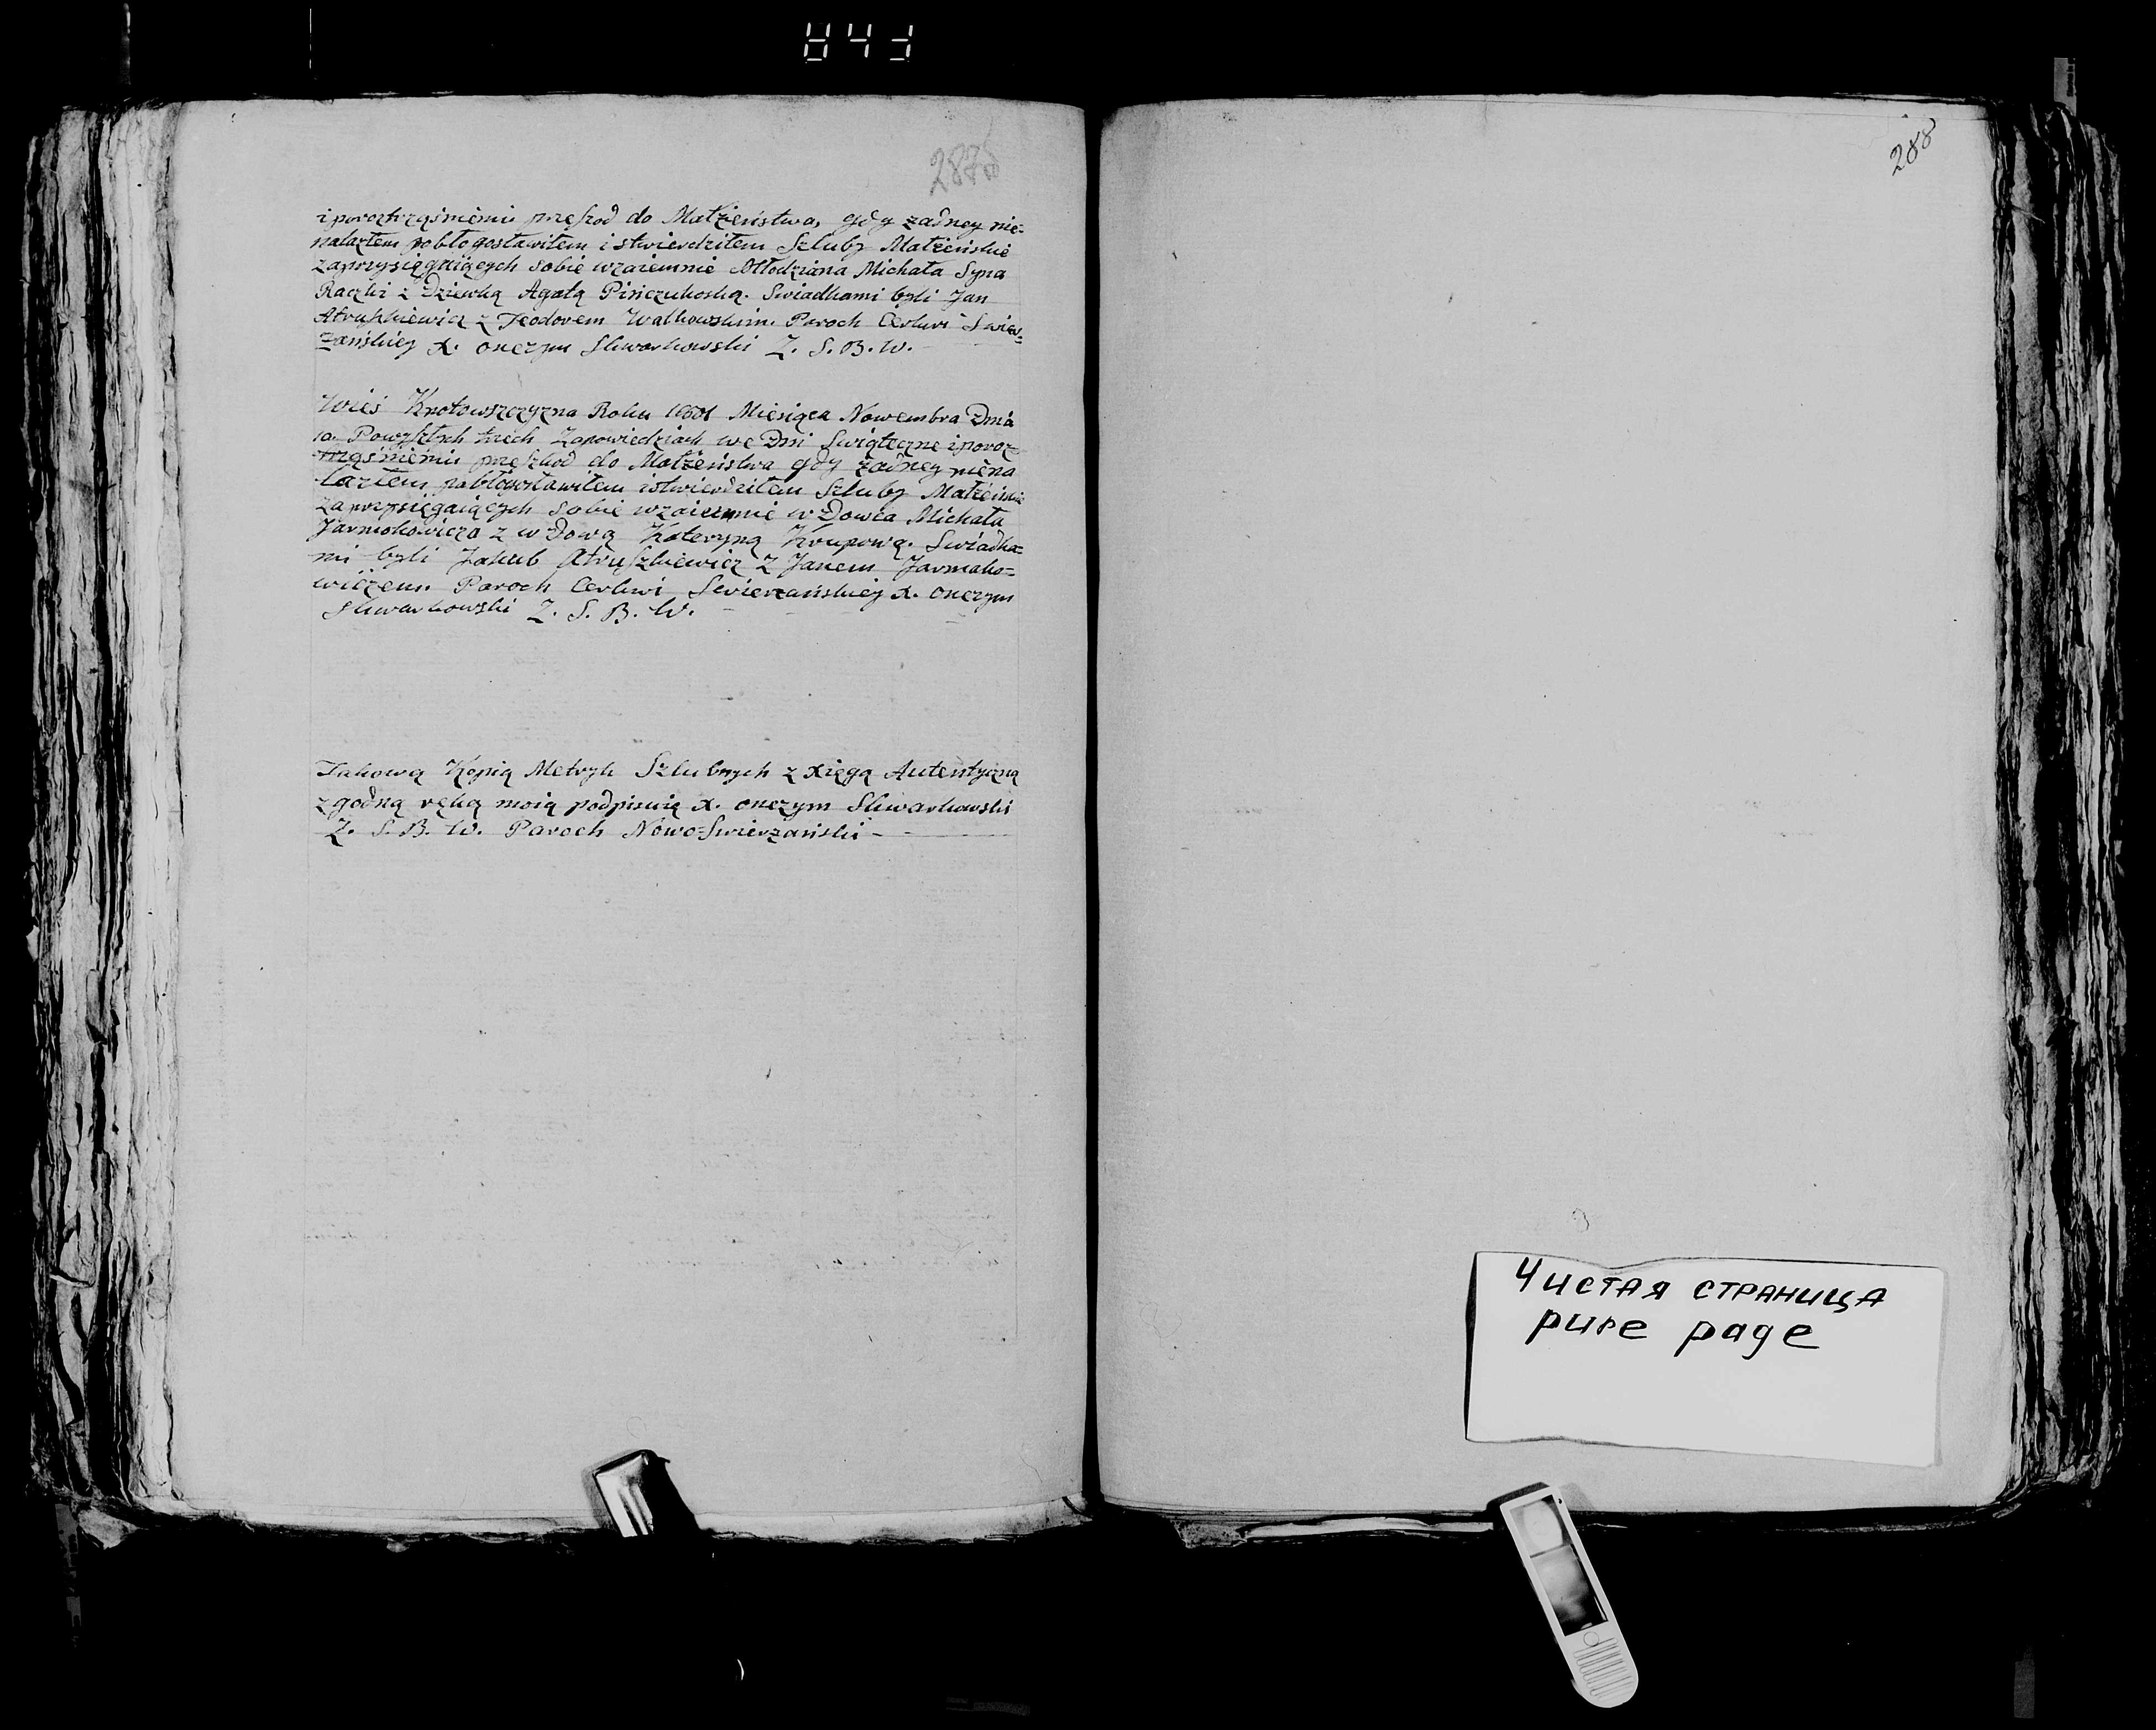 287б
i poroztrząśnieniu przeszod do Małżeństwa, gdy żadney nie=
nalazłem pobłogosławiłem i stwierdziłem Szluby Małżeńskie
zaprzysięgaiących sobie wzaiemnie Młodziana Michała Syna
Raczki z Dziewką Agatą Pińczukoską. Swiadkami byli Jan
Atruszkiewicz z Teodorem Walkowskim. Paroch Cerkwi Swier=
zańskiey X. Onezym Skwarkowski Z. S. B. W.
Wieś Knotowszczyzna Roku Miesiąca Nowembra Dnia
10. Powyszłych trzech Zapowiedziach we Dni Swiąteczne i poroz=
trząśnieniu przeszkod do Małżeństwa gdy żadney niena
lazłem pobłogosławiłem i stwierdziłem Szluby Małżeńskie
zaprzysięgaiących sobie wzaiemnie wdowca Michała
Jarmokowicza z wdową Kateryną Krupową. Swiadka=
mi byli Jakub Atruszkiewicz z Janem Jarmoko=
wiczem. Paroch Cerkwi Swierzańskiey X. Onezym
Skwarkowski Z. S. B. W.
Takową Kopią Metryk Szlubnych z Xięgą Autentyczną
zgodną ręką moią podpisuię X. Onezym Skwarkowski
Z. S. B. W. Paroch Nowo=Swierzański
288
Чистая страница
pure page